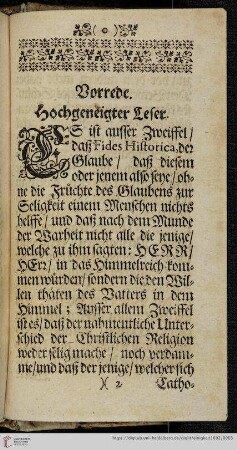 (o)
Vorrede.
Hochgeneigter Leser.
ES ist ausser Zweiffel/
daß Fides Historica, der
Glaube/ daß diesem
oder jenem also seye/ oh-
ne die Früchte des Glaubens zur
Seligkeit einem Menschen nichts
helffe/ und daß nach dem Munde
der Warheit nicht alle die jenige/
welche zu ihm sagten: HERR/
HErr/ in das Himmelreich kom-
men würden/ sondern die den Wil-
len thäten des Vatters in dem
Himmel; Ausser allem Zweiffel
ist es/ daß der nahmentliche Unter-
schied der Christlichen Religion
weder selig mache/ noch verdam-
me/ und daß der jenige/ welcher sich
)( 2 Catho-